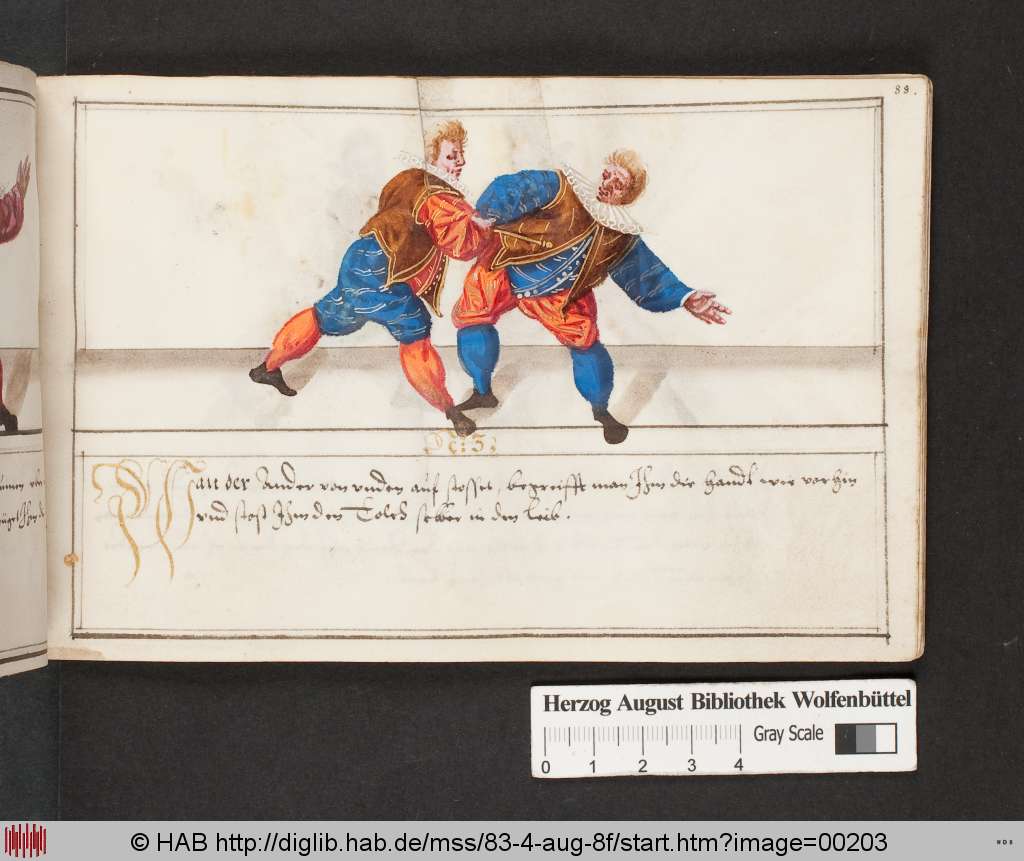 88.
N: 3:
Wan der Ander von unden auf stosset, begreifft man Ihm die handt wie vorhin
und stost Ihm den Tolch selber in den leib.
Herzog August Bibliothek Wolfenbüttel
Gray Scale
0 1 2 3 4
© HAB http://diglib.hab.de/mss/83-4-aug-8f/start.htm?image=00203